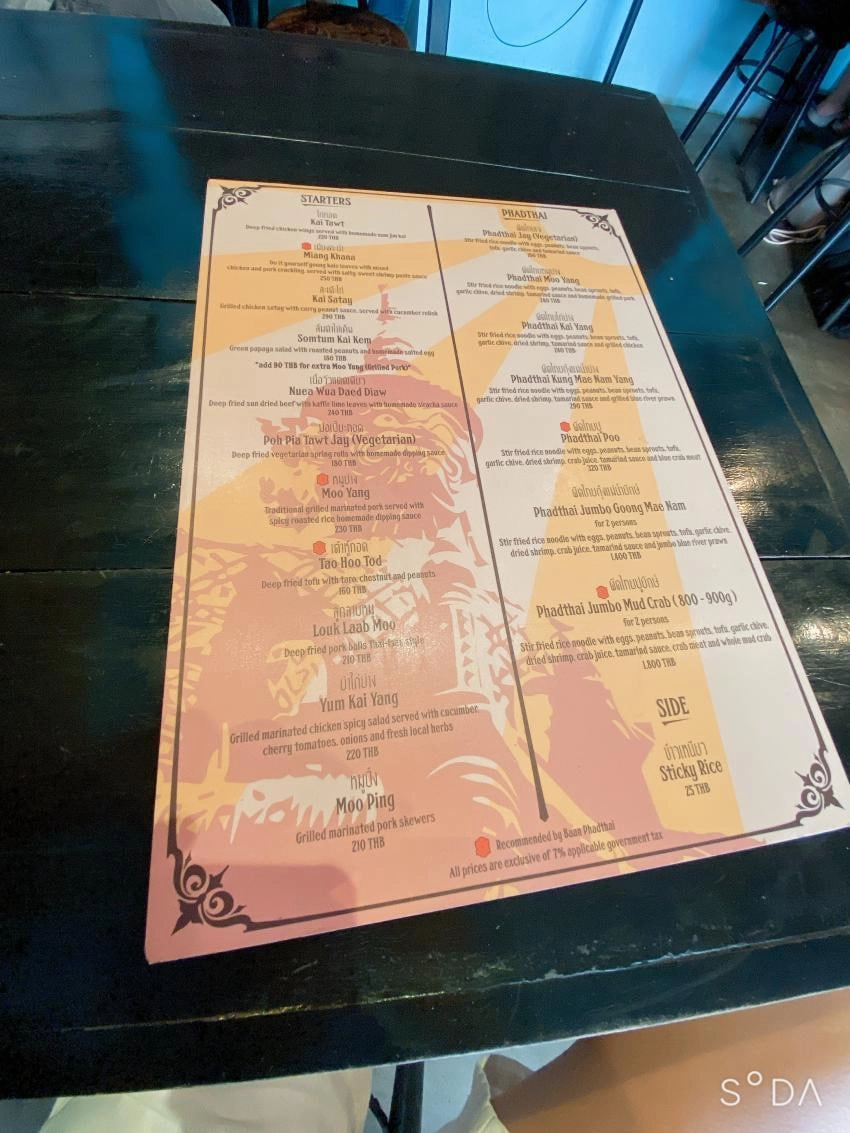 STARTERS
ไก่ทอด
Kai Tawt
Deep fried chicken wings served with homemade nam jim kai
220 THB
เมี่ยงคะน้า
Miang Khana
Do it yourself young kale leaves with mixed
chicken and pork crackling, served with salty, sweet shrimp paste sauce
250 THB
สะเต๊ะไก่
Kai Satay
Grilled chicken satay with curry peanut sauce, served with cucumber relish
290 THB
ส้มตำไข่เค็ม
Somtum Kai Kem
Green papaya salad with roasted peanuts and homemade salted egg
180 THB
*add 90 THB for extra Moo Yang (Grilled Pork)*
เนื้อวัวแดดเดียว
Nuea Wua Daed Diaw
Deep fried sun dried beef with kaffir lime leaves with homemade siracha sauce
240 THB
ปอเปี๊ยะทอด
Poh Pia Tawt Jay (Vegetarian)
Deep fried vegetarian spring rolls with homemade dipping sauce
180 THB
หมูย่าง
Moo Yang
Traditional grilled marinated pork served with
spicy roasted rice homemade dipping sauce
230 THB
เต้าหู้ทอด
Tao Hoo Tod
Deep fried tofu with taro, chestnut and peanuts
160 THB
ลูกลาบทอด
Louk Laab Moo
Deep fried pork balls Thai-Esan style
210 THB
ยำไก่ย่าง
Yum Kai Yang
Grilled marinated chicken spicy salad served with cucumber,
cherry tomatoes, onions and fresh local herbs
220 THB
หมูปิ้ง
Moo Ping
Grilled marinated pork skewers
210 THB
PHADTHAI
ผัดไทยเจ
Phadthai Jay (Vegetarian)
Stir fried rice noodle with eggs, peanuts, bean sprouts,
tofu, garlic chive and tamarind sauce
THB
ผัดไทยหมูย่าง
Phadthai Moo Yang
Stir fried rice noodle with eggs, peanuts, bean sprouts, tofu,
garlic chive, dried shrimp, tamarind sauce and homemade grilled pork
THB
ผัดไทยไก่ย่าง
Phadthai Kai Yang
Stir fried rice noodle with eggs, peanuts, bean sprouts, tofu,
garlic chive, dried shrimp, tamarind sauce and grilled chicken
THB
ผัดไทยกุ้งแม่น้ำย่าง
Phadthai Kung Mae Nam Yang
Stir fried rice noodle with eggs, peanuts, bean sprouts, tofu,
garlic chive, dried shrimp, tamarind sauce and grilled blue river prawn
290 THB
ผัดไทยปู
Phadthai Poo
Stir fried rice noodle with eggs, peanuts, bean sprouts, tofu,
garlic chive, dried shrimp, crab juice, tamarind sauce and blue crab meat
320 THB
ผัดไทยกุ้งแม่น้ำยักษ์
Phadthai Jumbo Goong Mae Nam
for 2 persons
Stir fried rice noodle with eggs, peanuts, bean sprouts, tofu, garlic chive,
dried shrimp, crab juice, tamarind sauce and jumbo blue river prawn
1,400 THB
ผัดไทยปูยักษ์
Phadthai Jumbo Mud Crab ( 800 - 900g )
for 2 persons
Stir fried rice noodle with eggs, peanuts, bean sprouts, tofu, garlic chive,
dried shrimp, crab juice, tamarind sauce, crab meat and whole mud crab
1,800 THB
SIDE
ข้าวเหนียว
Sticky Rice
25 THB
Recommended by Baan Phadthai
All prices are exclusive of 7% applicable government tax
SODA